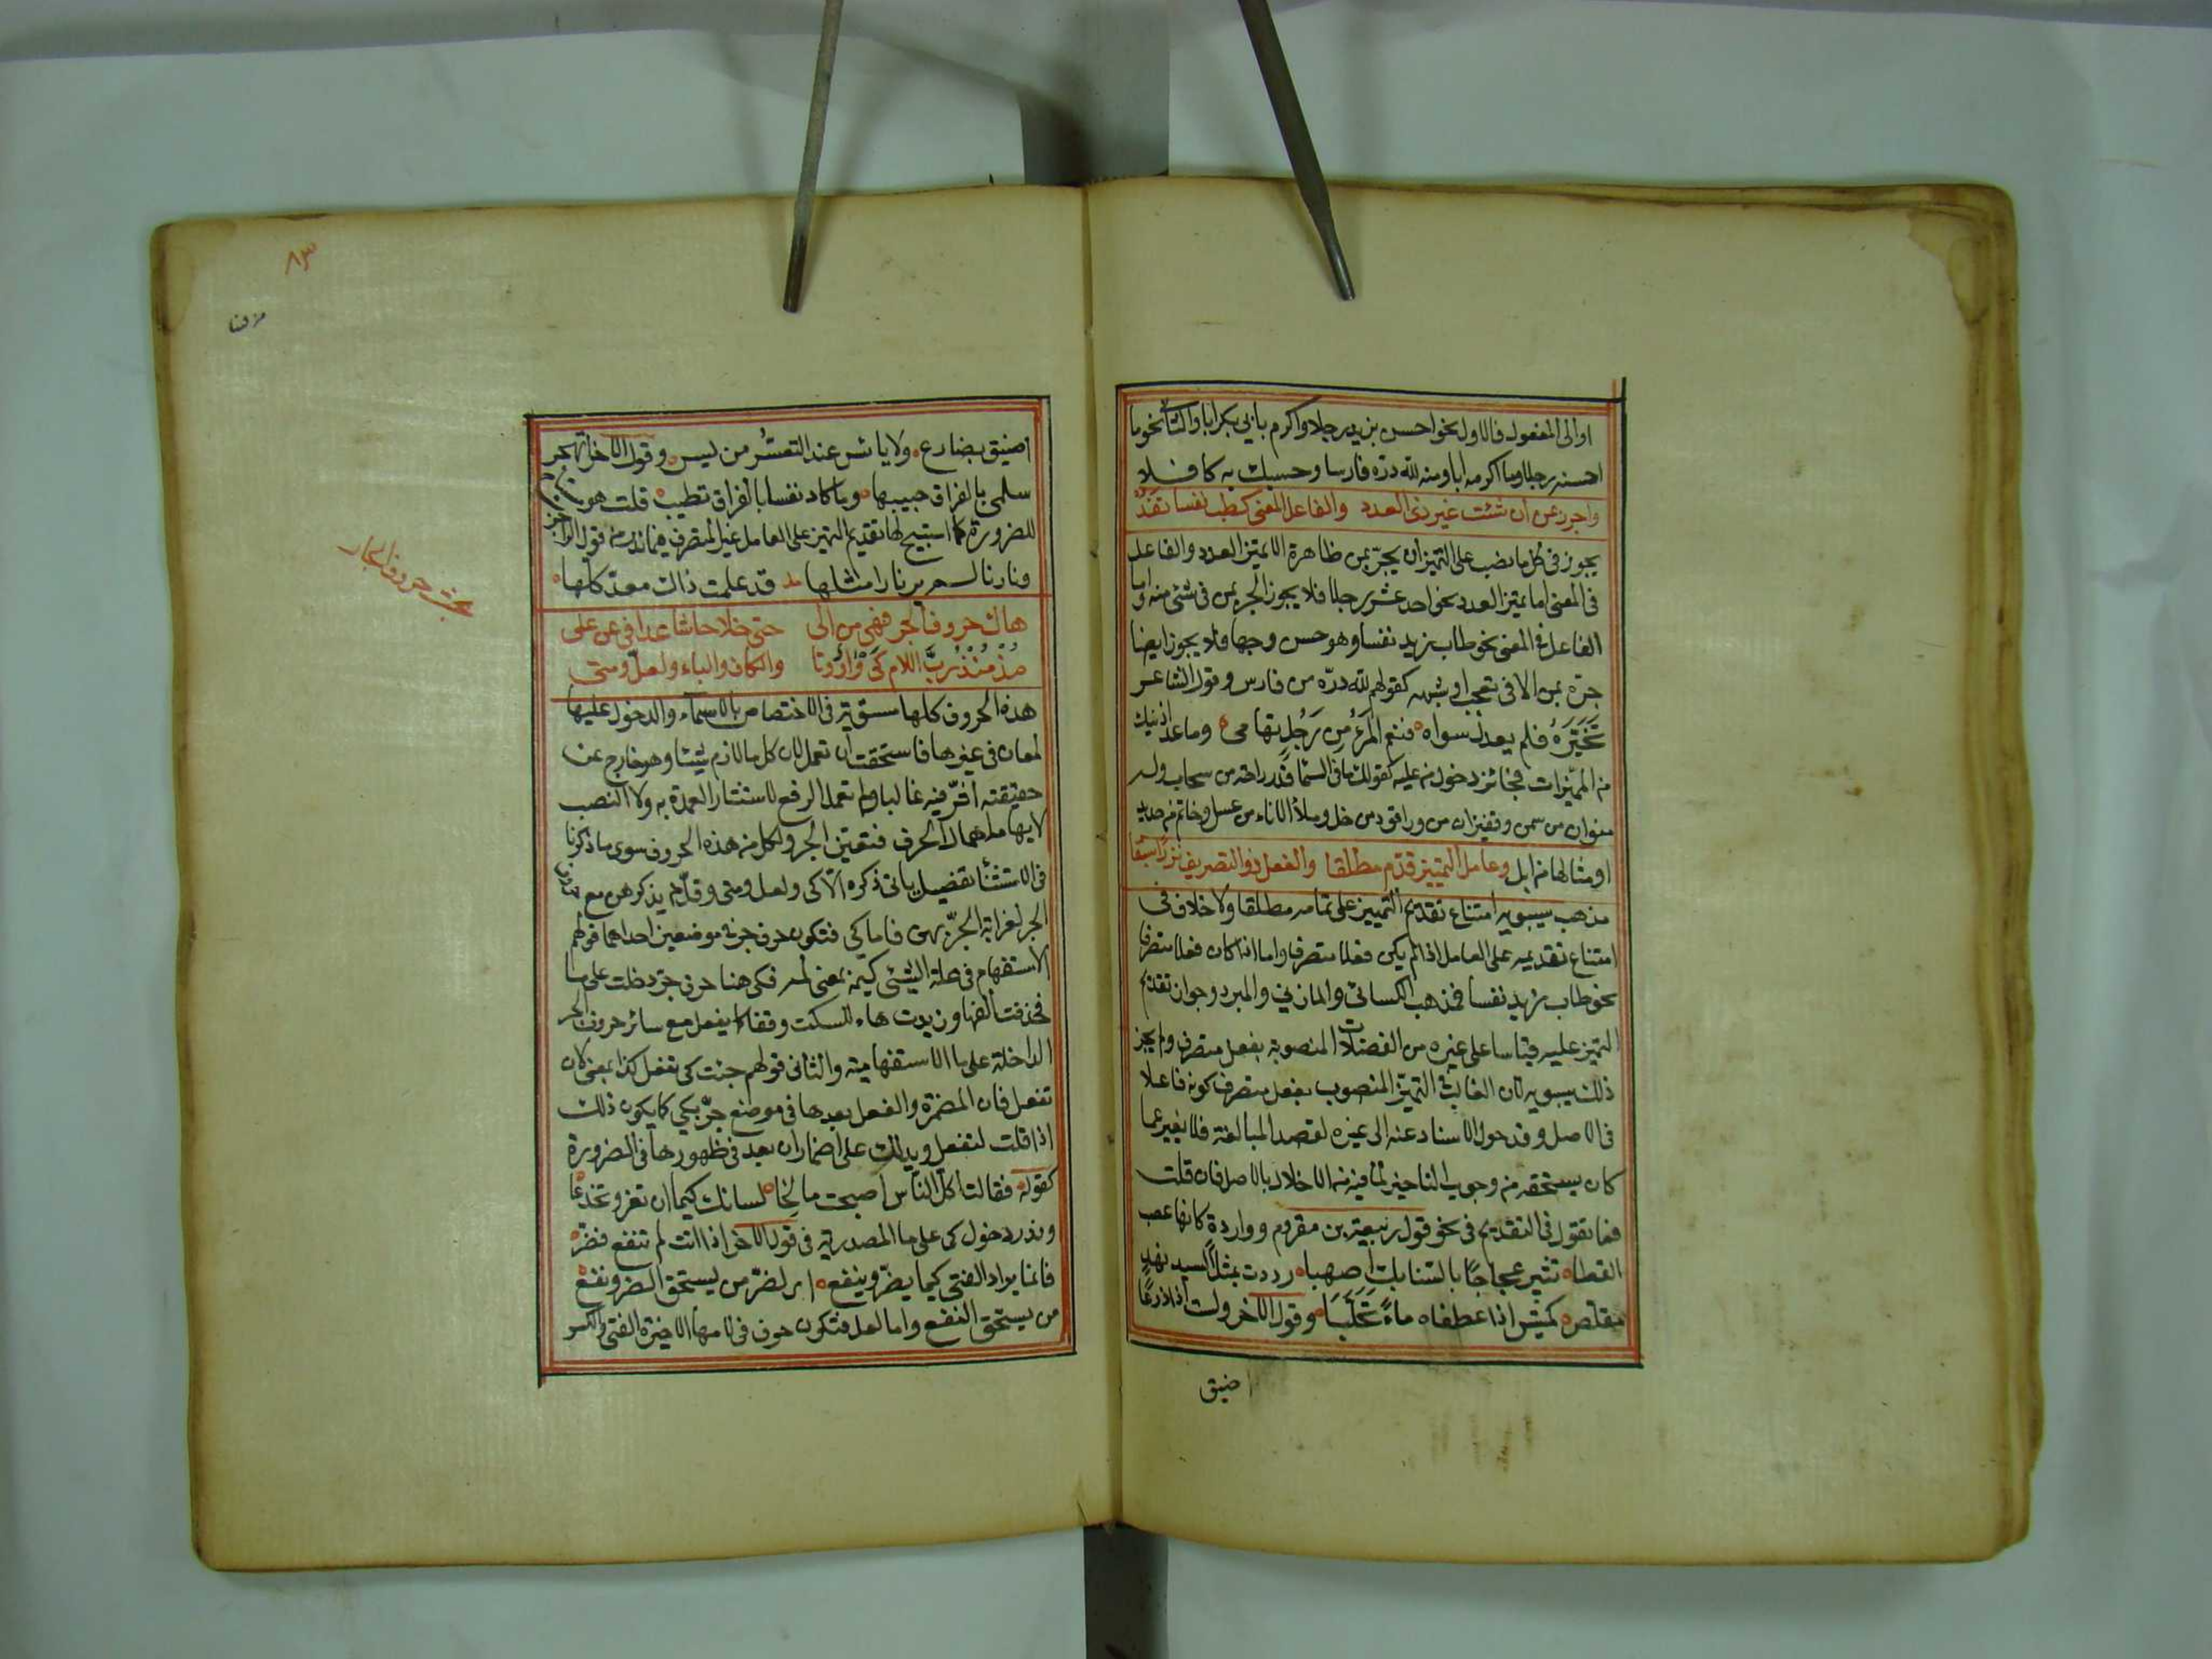 او الى المفعول فالاول نحو احسن بزيد رجلا واكرم بابي بكر ابا والثاني نحو ما
احسنه رجلا وما اكرمه ابا ومنه لله درّه فارسا وحسبك به كافلا
واجرر بمن ان شئت غير ذى العدد والفاعل المعنى كطب نفسا تفد
يجوز فى كل ما نصب على التميز ان يجرّ بمن ظاهرة الا تميز العدد والفاعل
فى المعنى اما تميز العدد نحو احد عشر رجلا فلا يجوز الجر بمن فى شئ منه واما
الفاعل فى المعنى نحو طاب زيد نفسا وهو حسن وجها فلا يجوز ايضا
جرّه بمن الا فى تعجب او شبهه كقولهم لله درّه من فارس وقول الشاعر
تَخَيَّرَهُ فلم يعدل سواه فنعم المرءُ مِن رَجُلٍ تهامى وما عدا ذينك
من المميّزات فجائز دخول من عليه كقولك ما فى السما قدر راحة من سحاب وله
منوان من سمن وقفيزان من وراقود من خل وملأ الاناء من عسل وخاتم من حديد
او مثالها من ابل وعامل التمييز قدّم مطلقا والفعل ذو التصريف نزرا سبقا
مذهب سيبويه امتناع تقديم التمييز على عامله مطلقا ولا خلاف فى
امتناع تقديمه على العامل اذا لم يكن فعلا متصرفا واما اذا كان فعلا متصرفا
نحو طاب زيد نفسا فمذهب الكسائى والمازني والمبرد وجوان تقديم
التميز عليه قياسا على غيره من الفضلات المنصوبة بفعل متصرف ولم يجز
ذلك سيبويه لان الغالب فى التميّز المنصوب بفعل متصرف كونه فاعلا
فى الاصل وقد حول الاسناد عنه الى غيره لقصد المبالغة فلا يغير عما
كان يستحقه من وجوب التاخير لما فيه من الاخلال بالاصل فان قلت
فما تقول فى التقديم فى نحو قول ربيعة بن مقروم وواردةٍ كانها عصب
القطاه تثير عجاجًا بالسّنابك اصهباه رددت بمثل السيد نهدٍ
مقلّصٍ كميش اذا عطفاه ماءً تَحَلَّبَا وقول الآخر ولست اذا ذرعًا
اضيق
٨٣
من هنا
بحث حروف الجار
اضيق بضارع ولا يائس عند التعسّر من يسر وقول الآخر اتهجر
سلمى بالفراق حبيبها وما كاد نفسا بالفراق تطيب قلت هو
للضرورة كما استبيح لها تقديم التميز على العامل غير المتصرف فيما ندر من قول الراجز
ونارنا لم ير نارا مثلها قد علمت ذاك معدّ كلها
هاك حروف الجر وهى من الى حتى خلا حاشا عدا فى عن على
مذ منذ ربّ اللام كى واو وتا والكاف والباء ولعلّ ومتى
هذه الحروف كلها مستوية فى الاختصاص بالاسماء والدخول عليها
لمعان فى غيرها فاستحقت ان تعمل لان كل ما لازم شيئا وهو خارج عن
حقيقته اثّر فيه غالبا ولم تعمل الرفع لاستئثار العمدة به ولا النصب
لايهام اهمال الحرف فتعين الجر ولكل من هذه الحروف سوى ما ذكرنا
فى الاستثنأ تفصيل ياتى ذكره الّا كى ولعل ومتى وقلّ من يذكرهن مع
الجر لغرابة الجرّ بهن فاما كى فتكون حرف جر فى موضعين احدهما قولهم
الاستفهام فى علة الشئى كيمه بمعنى لمه فكى هنا حرف جرّ دخلت على ما
فحذفت ألفها وزيدت هاء للسكت وقفا كما يفعل مع سائر حروف الجر
الداخلة على ما الاستفهامية والثانى قولهم جئت كى تفعل كذا بمعنى لان
تفعل فان المضمرة والفعل بعدها فى موضع جرّ بكى كما يكون ذلك
اذا قلت لتفعل ويدلك على اضمار ان بعد فى ظهورها فى الضرورة
كقوله فقالت اكلّ الناس اصبحت مانحا لسانك كيما ان تغرّ وتخدعا
وندر دخول كى على ما المصدرية فى قول الآخر اذا انت لم تنفع فضرّ
فانما يراد الفتى كيما يضرّ وينفع اى لضرّ من يستحق الضر ونفع
من يستحق النفع واما لعل فتكون حرف فى لامها الاخيرة الفتح والكسر